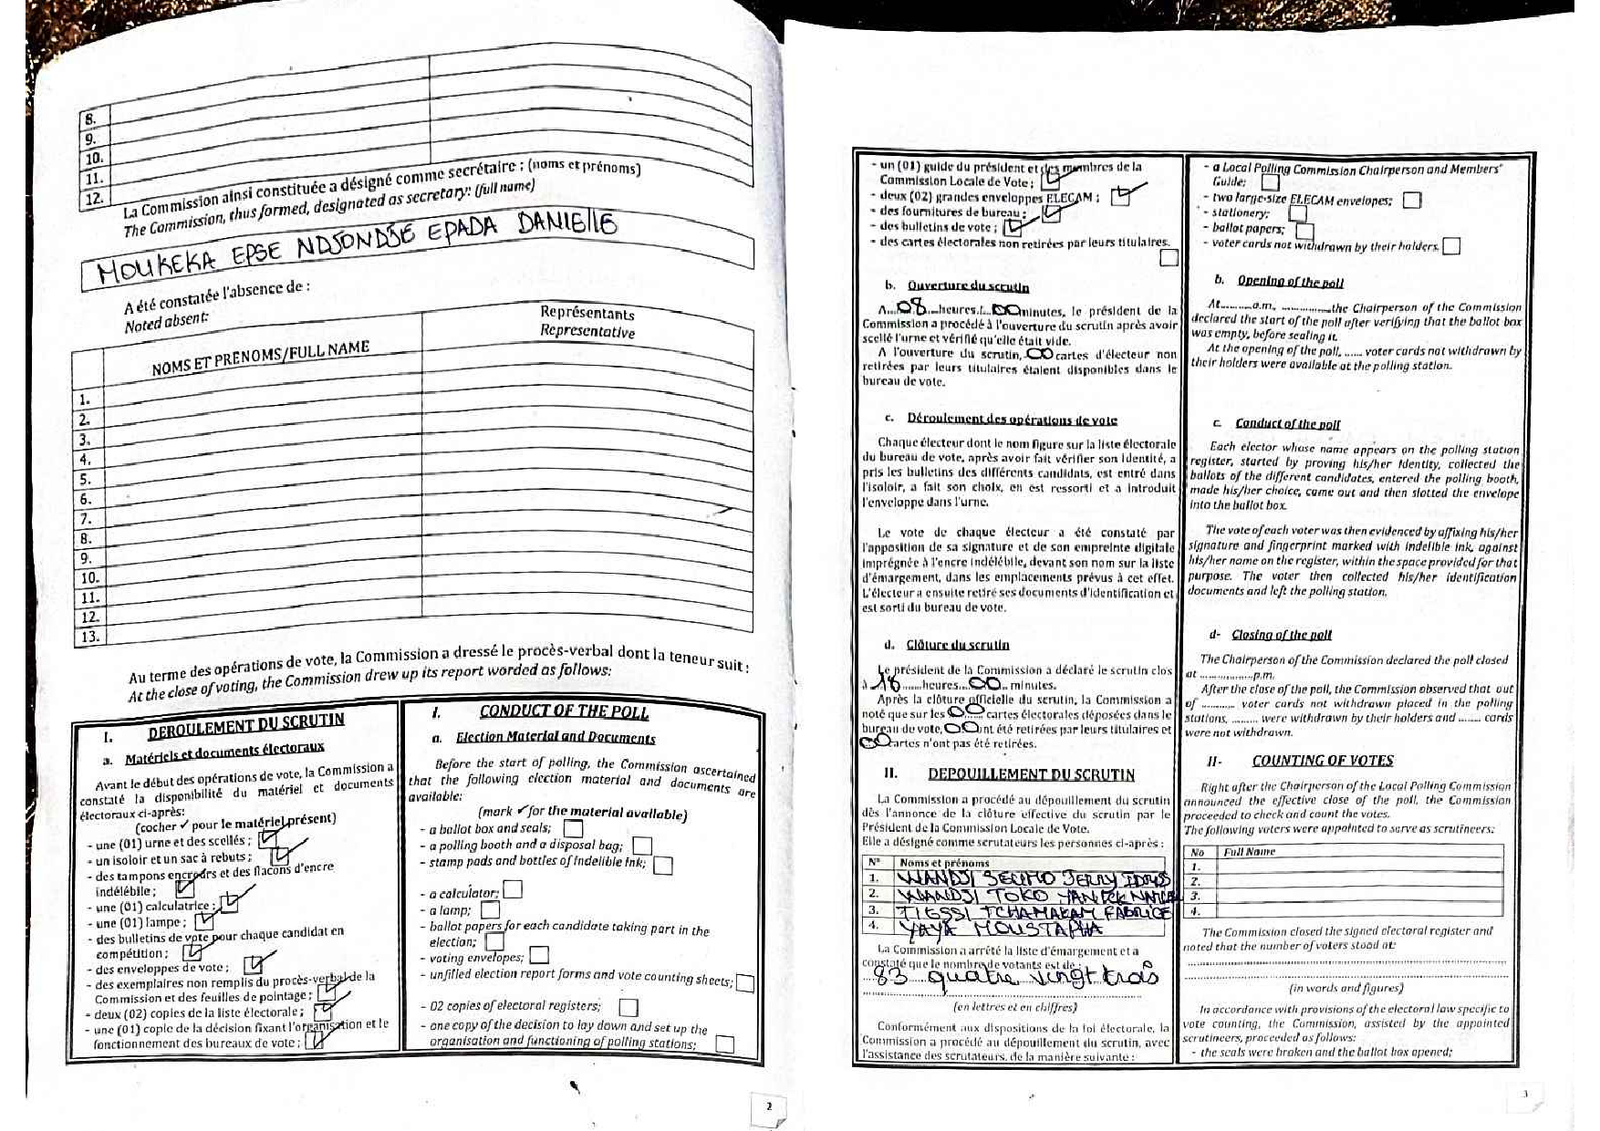 8.
9.
10.
11.
12.
La Commission ainsi constituée a désigné comme secrétaire : (noms et prénoms)
The Commission, thus formed, designated as secretary: (full name)
MOUKEKA EPSE NDJONDJE EPADA DANIELLE
A été constatée l'absence de :
Noted absent:
NOMS ET PRENOMS/FULL NAME
Représentants
Representative
1.
2.
3.
4.
5.
6.
7.
8.
9.
10.
11.
12.
13.
Au terme des opérations de vote, la Commission a dressé le procès-verbal dont la teneur suit :
At the close of voting, the Commission drew up its report worded as follows:
I. DEROULEMENT DU SCRUTIN
a. Matériels et documents électoraux
Avant le début des opérations de vote, la Commission a
constaté la disponibilité du matériel et documents
électoraux ci-après:
(cocher ✓ pour le matériel présent)
- une (01) urne et des scellés ;
- un isoloir et un sac à rebuts ;
- des tampons encreurs et des flacons d'encre
indélébile ;
- une (01) calculatrice ;
- une (01) lampe ;
- des bulletins de vote pour chaque candidat en
compétition ;
- des enveloppes de vote ;
- des exemplaires non remplis du procès-verbal de la
Commission et des feuilles de pointage ;
- deux (02) copies de la liste électorale ;
- une (01) copie de la décision fixant l'organisation et le
fonctionnement des bureaux de vote ;
I. CONDUCT OF THE POLL
a. Election Material and Documents
Before the start of polling, the Commission ascertained
that the following election material and documents are
available:
(mark ✓ for the material available)
- a ballot box and seals;
- a polling booth and a disposal bag;
- stamp pads and bottles of indelible ink;
- a calculator;
- a lamp;
- ballot papers for each candidate taking part in the
election;
- voting envelopes;
- unfilled election report forms and vote counting sheets;
- 02 copies of electoral registers;
- one copy of the decision to lay down and set up the
organisation and functioning of polling stations;
2
- un (01) guide du président et des membres de la
Commission Locale de Vote ;
- deux (02) grandes enveloppes ELECAM ;
- des fournitures de bureau ;
- des bulletins de vote ;
- des cartes électorales non retirées par leurs titulaires.
b. Ouverture du scrutin
A...08...heures...00 minutes, le président de la
Commission a procédé à l'ouverture du scrutin après avoir
scellé l'urne et vérifié qu'elle était vide.
A l'ouverture du scrutin, 00 cartes d'électeur non
retirées par leurs titulaires étaient disponibles dans le
bureau de vote.
c. Déroulement des opérations de vote
Chaque électeur dont le nom figure sur la liste électorale
du bureau de vote, après avoir fait vérifier son identité, a
pris les bulletins des différents candidats, est entré dans
l'isoloir, a fait son choix, en est ressorti et a introduit
l'enveloppe dans l'urne.
Le vote de chaque électeur a été constaté par
l'apposition de sa signature et de son empreinte digitale
imprégnée à l'encre indélébile, devant son nom sur la liste
d'émargement, dans les emplacements prévus à cet effet.
L'électeur a ensuite retiré ses documents d'identification et
est sorti du bureau de vote.
d. Clôture du scrutin
Le président de la Commission a déclaré le scrutin clos
à 18......heures...00.. minutes.
Après la clôture officielle du scrutin, la Commission a
noté que sur les 00 cartes électorales déposées dans le
bureau de vote, 00 ont été retirées par leurs titulaires et
00 cartes n'ont pas été retirées.
II. DEPOUILLEMENT DU SCRUTIN
La Commission a procédé au dépouillement du scrutin
dès l'annonce de la clôture effective du scrutin par le
Président de la Commission Locale de Vote.
Elle a désigné comme scrutateurs les personnes ci-après :
N° Noms et prénoms
1. WANDJI SEUMO JERRY IDRISS
2. WANDJI TOKO YANICK
3. TIESSI TCHAMAKAM FABRICE
4. YAYA MOUSTAPHA
La Commission a arrêté la liste d'émargement et a
constaté que le nombre de votants est de :
83 quatre vingt trois
(en lettres et en chiffres)
Conformément aux dispositions de la loi électorale, la
Commission a procédé au dépouillement du scrutin, avec
l'assistance des scrutateurs, de la manière suivante :
- a Local Polling Commission Chairperson and Members'
Guide;
- two large-size ELECAM envelopes;
- stationery;
- ballot papers;
- voter cards not withdrawn by their holders.
b. Opening of the poll
At..........a.m, ...............the Chairperson of the Commission
declared the start of the poll after verifying that the ballot box
was empty, before sealing it.
At the opening of the poll, ...... voter cards not withdrawn by
their holders were available at the polling station.
c. Conduct of the poll
Each elector whose name appears on the polling station
register, started by proving his/her identity, collected the
ballots of the different candidates, entered the polling booth,
made his/her choice, came out and then slotted the envelope
into the ballot box.
The vote of each voter was then evidenced by affixing his/her
signature and fingerprint marked with indelible ink, against
his/her name on the register, within the space provided for that
purpose. The voter then collected his/her identification
documents and left the polling station.
d- Closing of the poll
The Chairperson of the Commission declared the poll closed
at ..................p.m.
After the close of the poll, the Commission observed that out
of .......... voter cards not withdrawn placed in the polling
stations, ......... were withdrawn by their holders and ........ cards
were not withdrawn.
II- COUNTING OF VOTES
Right after the Chairperson of the Local Polling Commission
announced the effective close of the poll, the Commission
proceeded to check and count the votes.
The following voters were appointed to serve as scrutineers:
No Full Name
1.
2.
3.
4.
The Commission closed the signed electoral register and
noted that the number of voters stood at:
(in words and figures)
In accordance with provisions of the electoral law specific to
vote counting, the Commission, assisted by the appointed
scrutineers, proceeded as follows:
- the seals were broken and the ballot box opened;
3